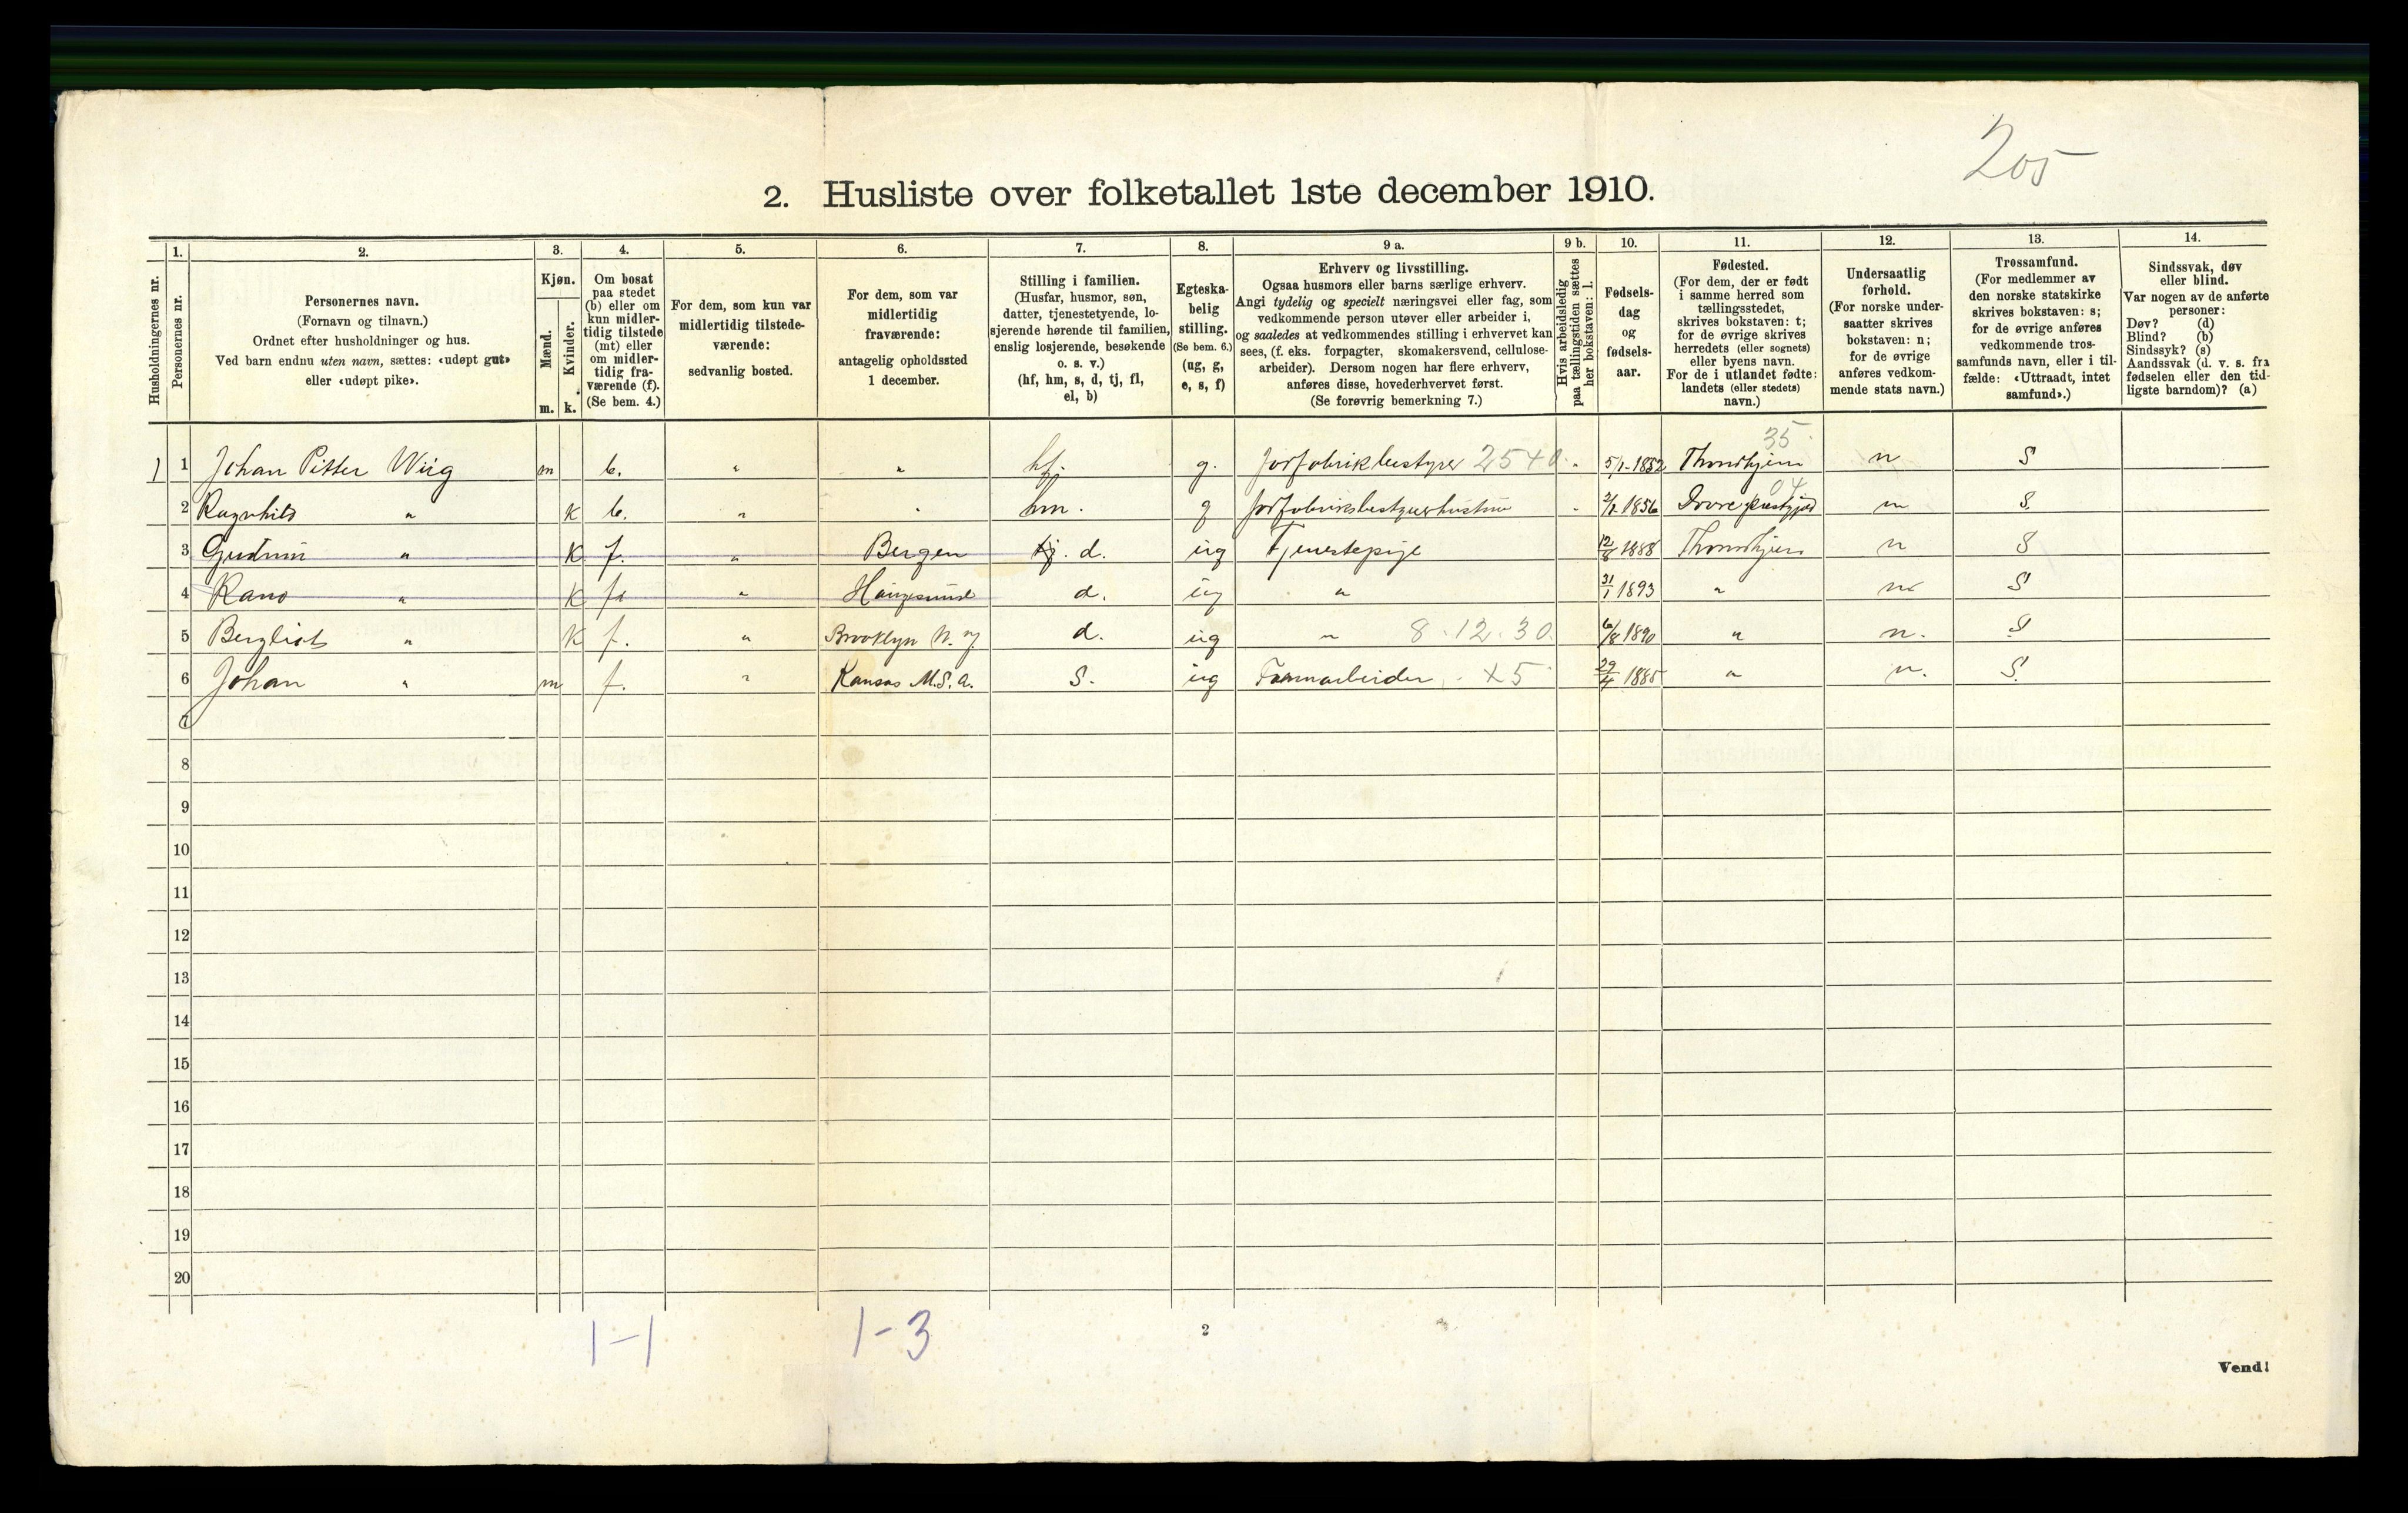 205
2. Husliste over folketallet 1ste december 1910.
Husholdningernes nr.
1.
Personernes nr.
2.
Personernes navn.
(Fornavn og tilnavn.)
Ordnet efter husholdninger og hus.
Ved barn endnu uten navn, sættes: «udøpt gut»
eller «udøpt pike».
3.
Kjøn.
Mænd.
Kvinder.
m. k.
4.
Om bosat
paa stedet
(b) eller om
kun midler-
tidig tilstede
(mt) eller
om midler-
tidig fra-
værende (f).
(Se bem. 4.)
5.
For dem, som kun var
midlertidig tilstede-
værende:
sedvanlig bosted.
6.
For dem, som var
midlertidig
fraværende:
antagelig opholdssted
1 december.
7.
Stilling i familien.
(Husfar, husmor, søn,
datter, tjenestetyende, lo-
sjerende hørende til familien,
enslig losjerende, besøkende
o. s. v.)
(hf, hm, s, d, tj, fl,
el, b)
8.
Egteska-
belig
stilling.
(Se bem. 6.)
(ug, g,
e, s, f)
9 a.
Erhverv og livsstilling.
Ogsaa husmors eller barns særlige erhverv.
Angi tydelig og specielt næringsvei eller fag, som
vedkommende person utøver eller arbeider i,
og saaledes at vedkommendes stilling i erhvervet kan
sees, (f. eks. forpagter, skomakersvend, cellulose-
arbeider). Dersom nogen har flere erhverv,
anføres disse, hovederhvervet først.
(Se forøvrig bemerkning 7.)
9 b.
Hvis arbeidsledig
paa tællingstiden sættes
her bokstaven: l.
10.
Fødsels-
dag
og
fødsels-
aar.
11.
Fødested.
(For dem, der er født
i samme herred som
tællingsstedet,
skrives bokstaven: t;
for de øvrige skrives
herredets (eller sognets)
eller byens navn.
For de i utlandet fødte:
landets (eller stedets)
navn.)
12.
Undersaatlig
forhold.
(For norske under-
saatter skrives
bokstaven: n;
for de øvrige
anføres vedkom-
mende stats navn.)
13.
Trossamfund.
(For medlemmer av
den norske statskirke
skrives bokstaven: s;
for de øvrige anføres
vedkommende tros-
samfunds navn, eller i til-
fælde: «Uttraadt, intet
samfund».)
14.
Sindssvak, døv
eller blind.
Var nogen av de anførte
personer:
Døv? (d)
Blind? (b)
Sindssyk? (s)
Aandssvak (d. v. s. fra
fødselen eller den tid-
ligste barndom)? (a)
35
1 1 Johan Pitter Wiig m b. " " hf. g. Jorfabrikbestyrer 2540. 5/1-1852 Thondhjem n S
04
2 Ragnhild " k b. " hm. g 1856 n S.
3 Gudrun " K f. " Bergen tj. d. ug Tjenestepige 12/8 1888 Thondhjem n S
4 " K f " Haugesund d. ug " 31/1 1893 " n S
5 Bergliot " K f. " Brooklyn N. y. d. ug " 8.12.30. 6/8 1890 " n. S
6 Johan " m f. " Kansas M.S.A. S. ug Farmarbeider X5 29/4 1885 " n. S.
7
8
9
10
11
12
13
14
15
16
17
18
19
20
1-1 1-3
2
Vend!